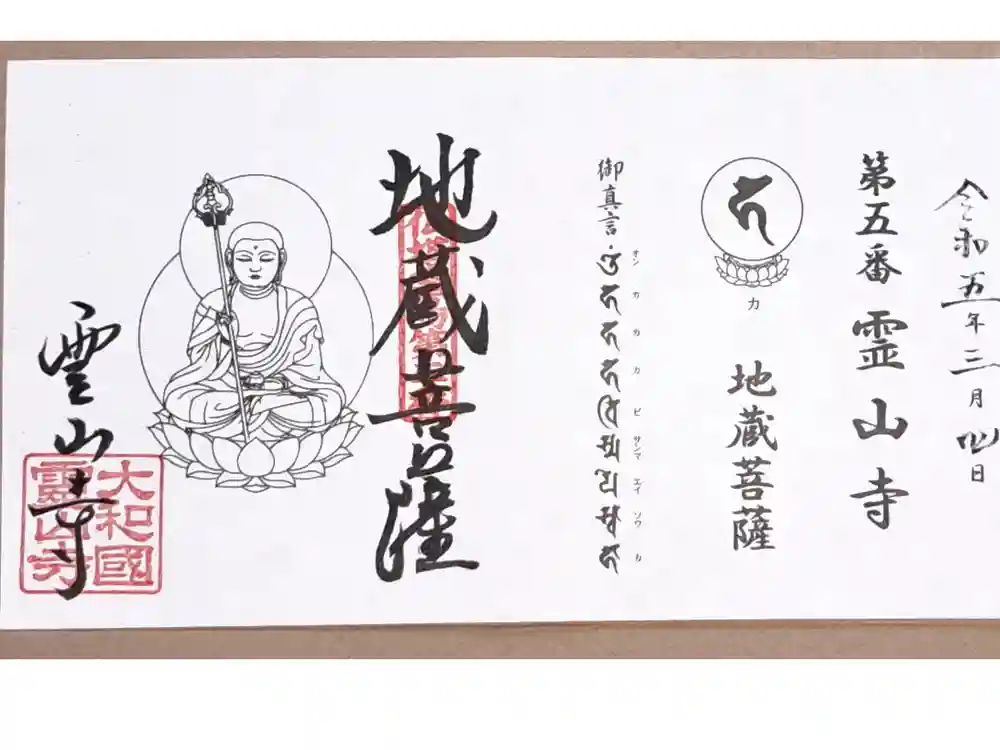 令和五年三月四日
第五番 霊山寺
カ
地蔵菩薩
御真言
オン カ カ カ ビ サンマ エイ ソワ カ
地蔵菩薩
霊山寺
大和國
靈山寺